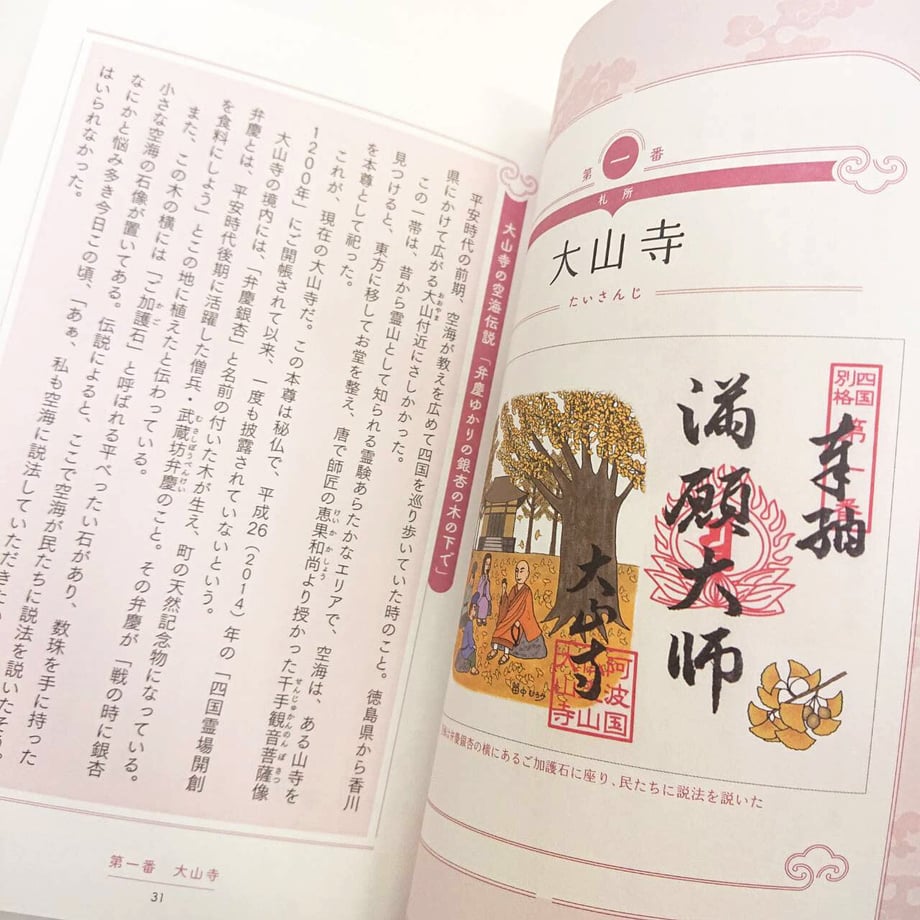 第一番
札所
大山寺
たいさんじ
四国
別格
第一番
奉拝
満願大師
大山寺
阿波国
大山寺
田中ひろみ
弁慶銀杏の横にあるご加護石に座り、民たちに説法を説いた
大山寺の空海伝説「弁慶ゆかりの銀杏の木の下で」
平安時代の前期、空海が教えを広めて四国を巡り歩いていた時のこと。徳島県から香川
県にかけて広がる大山付近にさしかかった。
おおやま
この一帯は、昔から霊山として知られる霊験あらたかなエリアで、空海は、ある山寺を
見つけると、東方に移してお堂を整え、唐で師匠の恵果和尚より授かった千手観音菩薩像
けいかかしょう
せんじゅかんのんぼさつ
を本尊として祀った。
これが、現在の大山寺だ。この本尊は秘仏で、平成26（2014）年の「四国霊場開創
1200年」にご開帳されて以来、一度も披露されていないという。
大山寺の境内には、「弁慶銀杏」と名前の付いた木が生え、町の天然記念物になっている。
弁慶とは、平安時代後期に活躍した僧兵・武蔵坊弁慶のこと。その弁慶が「戦の時に銀杏
むさしぼうべんけい
を食料にしよう」とこの地に植えたと伝わっている。
また、この木の横には「ご加護石」と呼ばれる平べったい石があり、数珠を手に持った
かご
小さな空海の石像が置いてある。伝説によると、ここで空海が民たちに説法を説いたそう。
なにかと悩み多き今日この頃、「あぁ、私も空海に説法していただきたい
はいられなかった。
第一番　大山寺
31